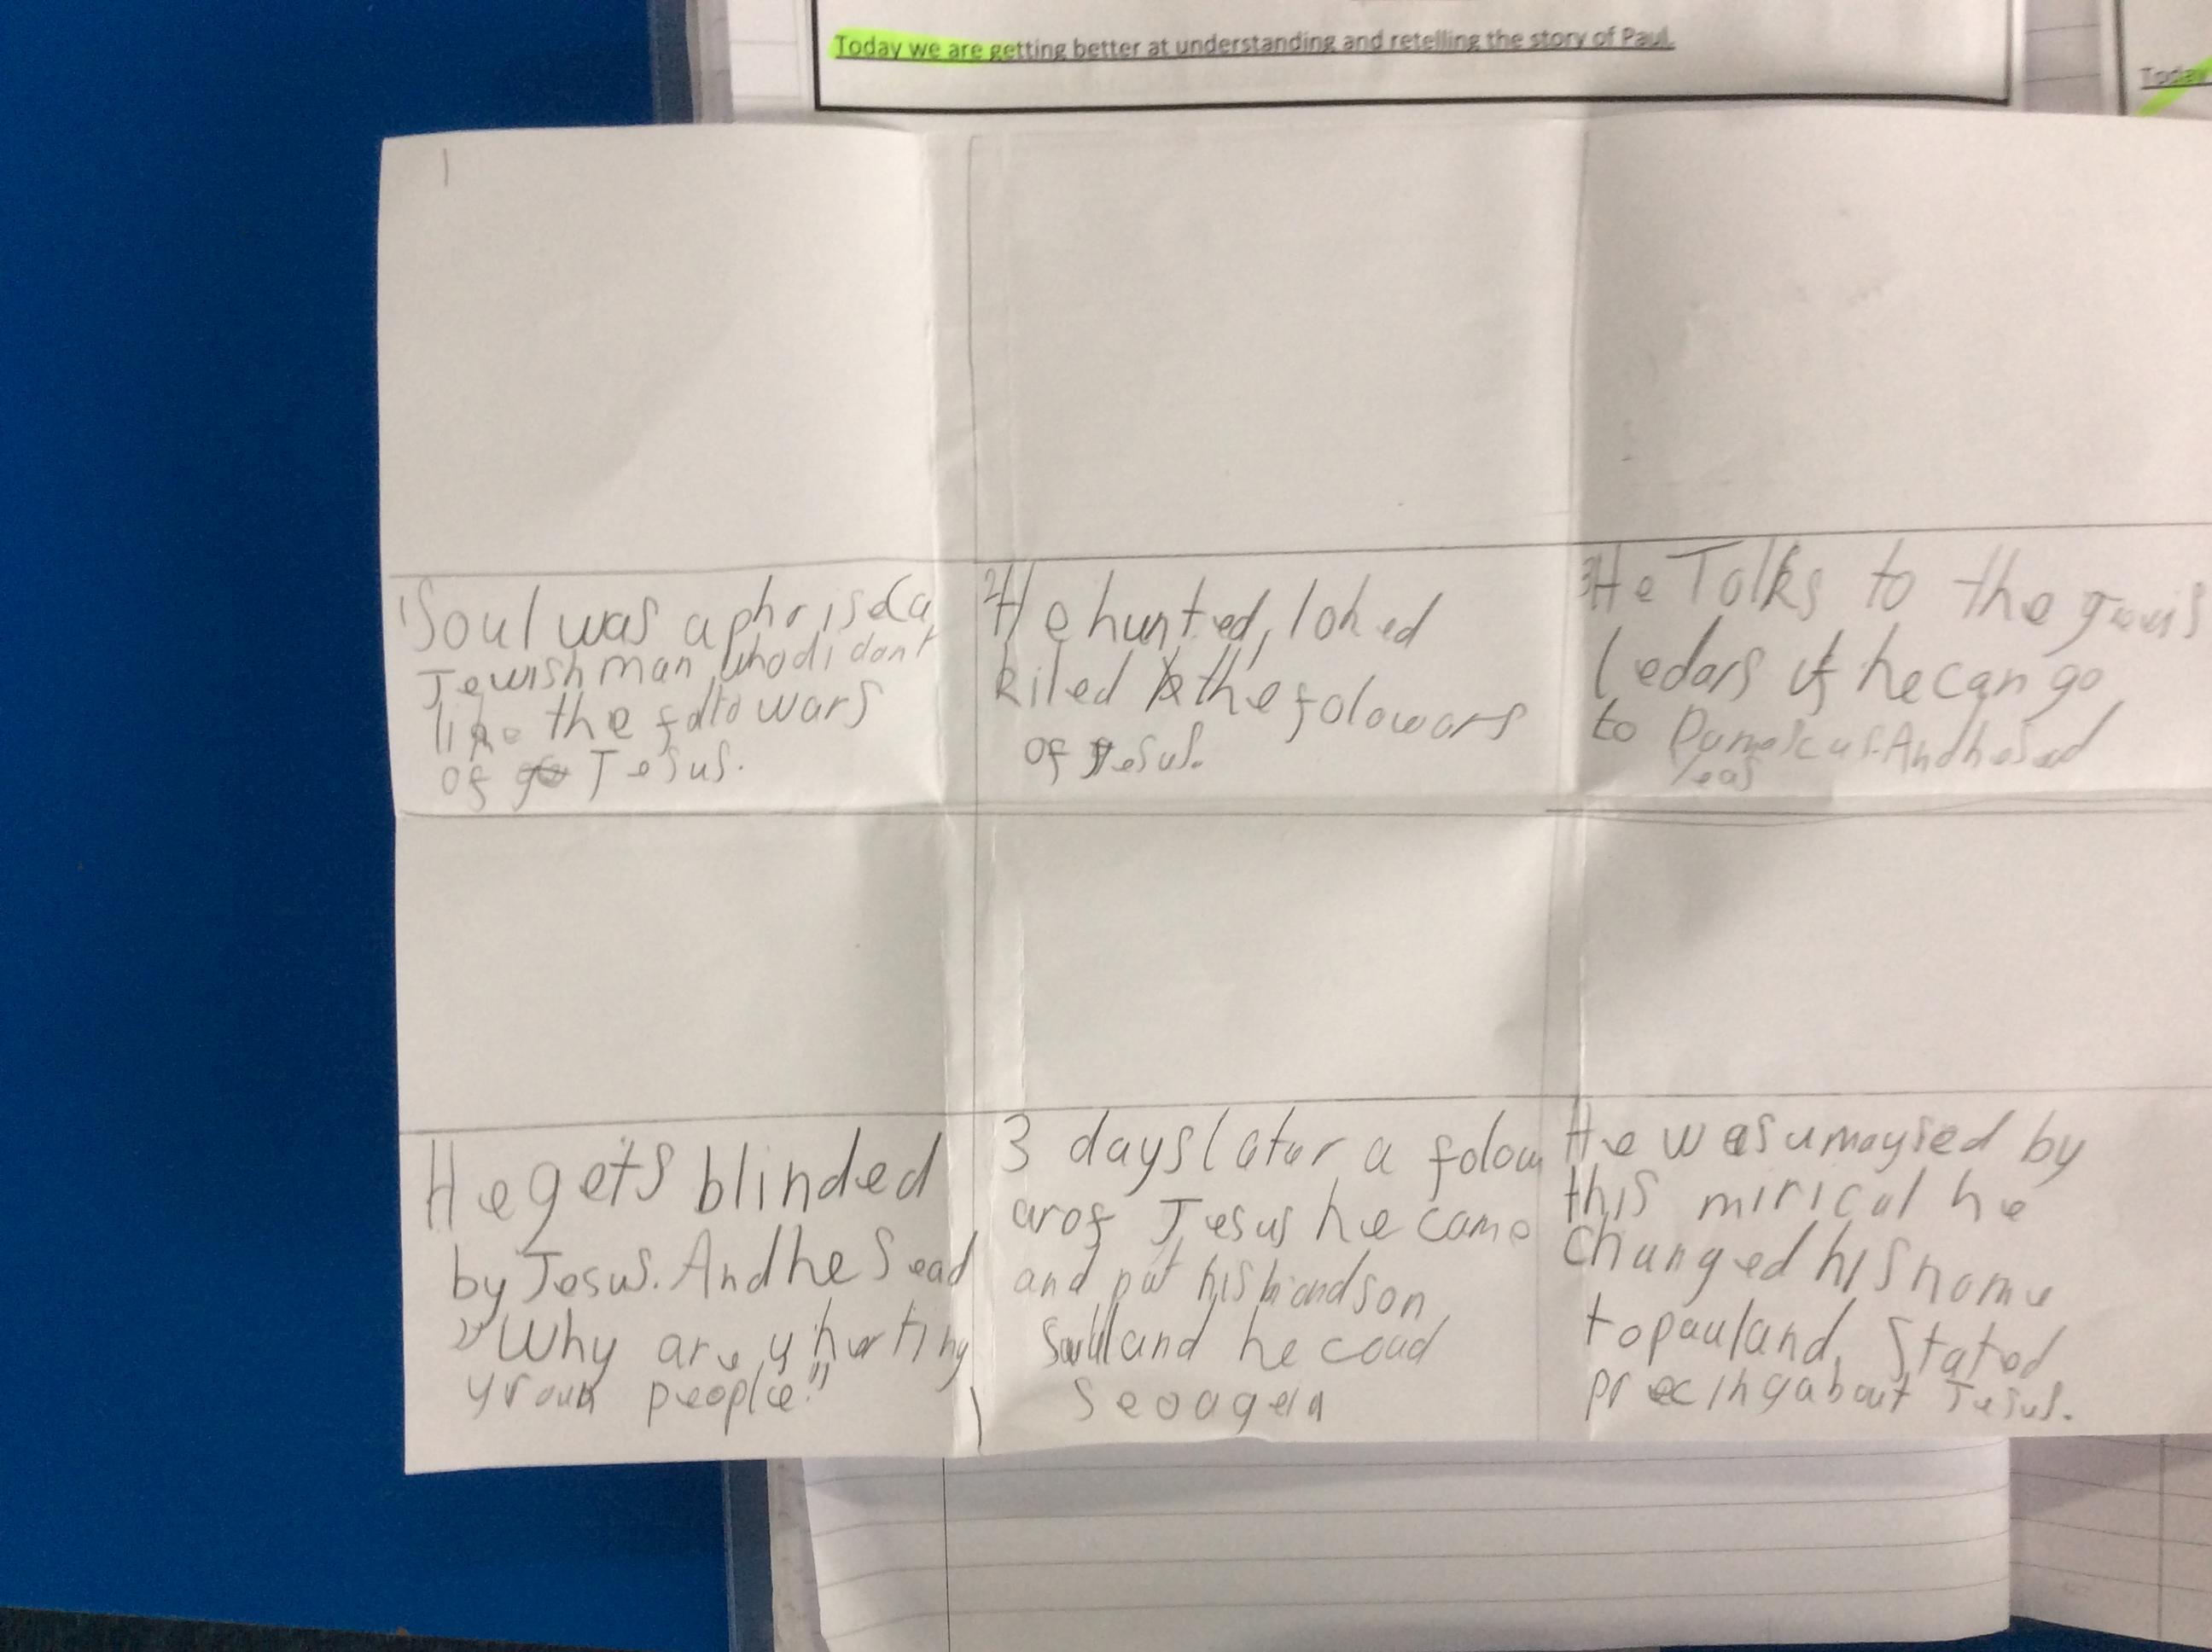 Today we are getting better at understanding and retelling the story of Paul.
Today
1
1 Soul was a phrisea
Jewish man who didont
like the follo wars
of Jesus.
2 He hunted, loked
kiled the folowors
of Jesus.
3 He Tolks to the
ledars if he can go
to Damascus. And he sed
yeas
He gets blinded
by Jesus. And he Sead
"Why are u hurting
people"
3 days later a folow
arof Jesus he came
and put his hands on
and he coud
Se oagein
He was umaysed by
this mirical he
changed his name
to paul and Stated
precing about Jesus.